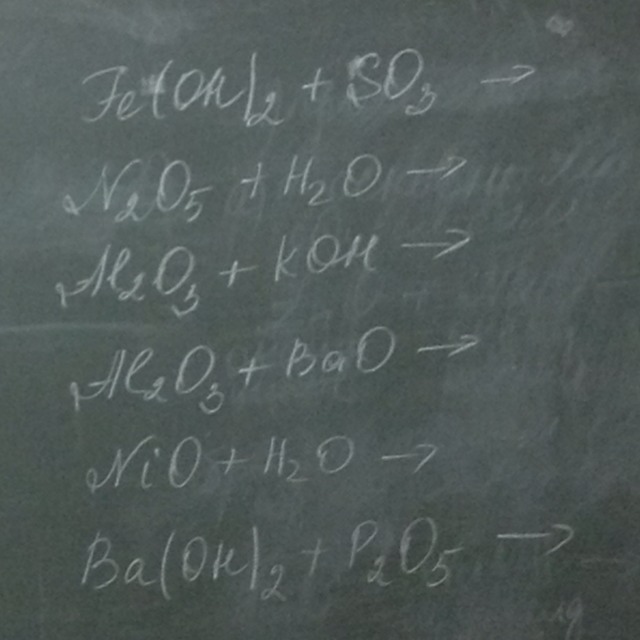 Fe(OH)₂ + SO₃ →
N₂O₅ + H₂O →
Al₂O₃ + KOH →
Al₂O₃ + BaO →
NiO + H₂O →
Ba(OH)₂ + P₂O₅ →